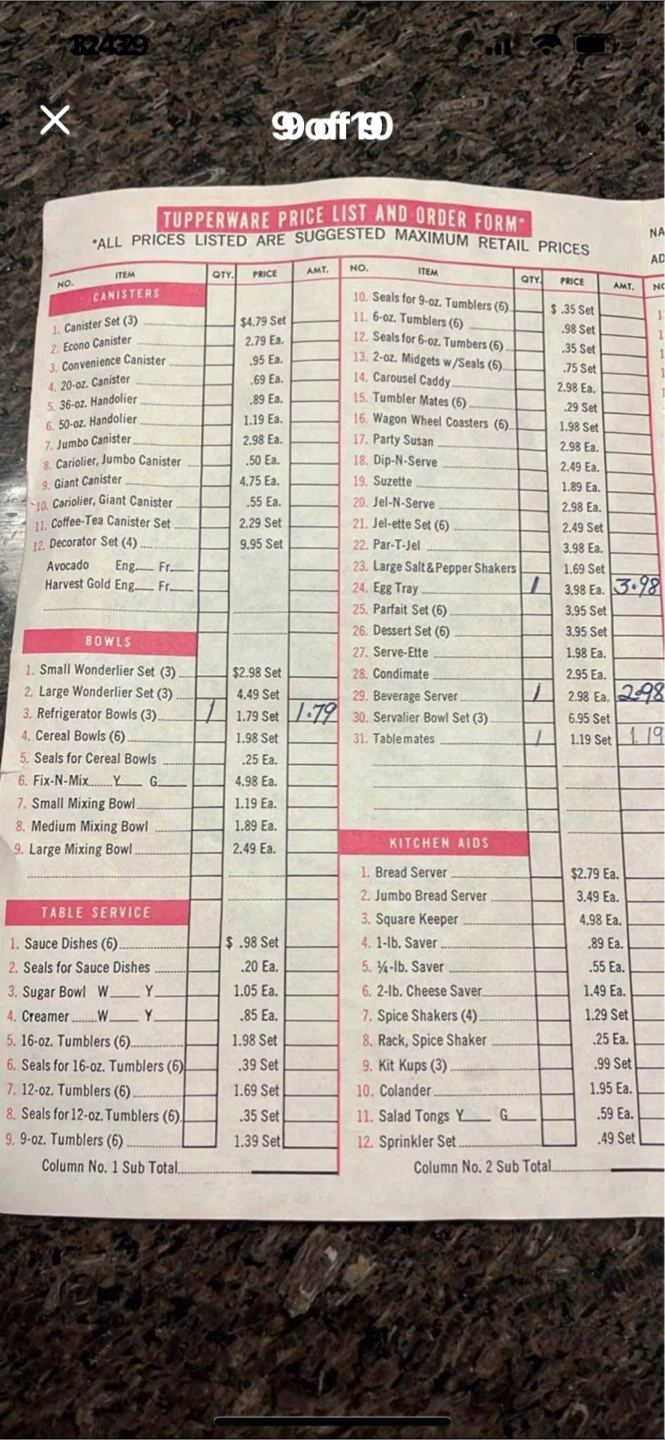 TUPPERWARE PRICE LIST AND ORDER FORM*
*ALL PRICES LISTED ARE SUGGESTED MAXIMUM RETAIL PRICES
NO. ITEM QTY. PRICE AMT.
CANISTERS
1. Canister Set (3) $4.79 Set
2. Econo Canister 2.79 Ea.
3. Convenience Canister .95 Ea.
4. 20-oz. Canister .69 Ea.
5. 36-oz. Handolier .89 Ea.
6. 50-oz. Handolier 1.19 Ea.
7. Jumbo Canister 2.98 Ea.
8. Cariolier, Jumbo Canister .50 Ea.
9. Giant Canister 4.75 Ea.
10. Cariolier, Giant Canister .55 Ea.
11. Coffee-Tea Canister Set 2.29 Set
12. Decorator Set (4) 9.95 Set
Avocado Eng. Fr.
Harvest Gold Eng. Fr.
BOWLS
1. Small Wonderlier Set (3) $2.98 Set
2. Large Wonderlier Set (3) 4.49 Set
3. Refrigerator Bowls (3) 1 1.79 Set 1.79
4. Cereal Bowls (6) 1.98 Set
5. Seals for Cereal Bowls .25 Ea.
6. Fix-N-Mix Y G 4.98 Ea.
7. Small Mixing Bowl 1.19 Ea.
8. Medium Mixing Bowl 1.89 Ea.
9. Large Mixing Bowl 2.49 Ea.
TABLE SERVICE
1. Sauce Dishes (6) $ .98 Set
2. Seals for Sauce Dishes .20 Ea.
3. Sugar Bowl W Y 1.05 Ea.
4. Creamer W Y .85 Ea.
5. 16-oz. Tumblers (6) 1.98 Set
6. Seals for 16-oz. Tumblers (6) .39 Set
7. 12-oz. Tumblers (6) 1.69 Set
8. Seals for 12-oz. Tumblers (6) .35 Set
9. 9-oz. Tumblers (6) 1.39 Set
Column No. 1 Sub Total
NO. ITEM QTY. PRICE AMT.
10. Seals for 9-oz. Tumblers (6) $ .35 Set
11. 6-oz. Tumblers (6) .98 Set
12. Seals for 6-oz. Tumbers (6) .35 Set
13. 2-oz. Midgets w/Seals (6) .75 Set
14. Carousel Caddy 2.98 Ea.
15. Tumbler Mates (6) .29 Set
16. Wagon Wheel Coasters (6) 1.98 Set
17. Party Susan 2.98 Ea.
18. Dip-N-Serve 2.49 Ea.
19. Suzette 1.89 Ea.
20. Jel-N-Serve 2.98 Ea.
21. Jel-ette Set (6) 2.49 Set
22. Par-T-Jel 3.98 Ea.
23. Large Salt & Pepper Shakers 1.69 Set
24. Egg Tray 1 3.98 Ea. 3.98
25. Parfait Set (6) 3.95 Set
26. Dessert Set (6) 3.95 Set
27. Serve-Ette 1.98 Ea.
28. Condimate 2.95 Ea.
29. Beverage Server 1 2.98 Ea. 2.98
30. Servalier Bowl Set (3) 6.95 Set
31. Tablemates 1 1.19 Set 1.19
KITCHEN AIDS
1. Bread Server $2.79 Ea.
2. Jumbo Bread Server 3.49 Ea.
3. Square Keeper 4.98 Ea.
4. 1-lb. Saver .89 Ea.
5. ¼-lb. Saver .55 Ea.
6. 2-lb. Cheese Saver 1.49 Ea.
7. Spice Shakers (4) 1.29 Set
8. Rack, Spice Shaker .25 Ea.
9. Kit Kups (3) .99 Set
10. Colander 1.95 Ea.
11. Salad Tongs Y G .59 Ea.
12. Sprinkler Set .49 Set
Column No. 2 Sub Total